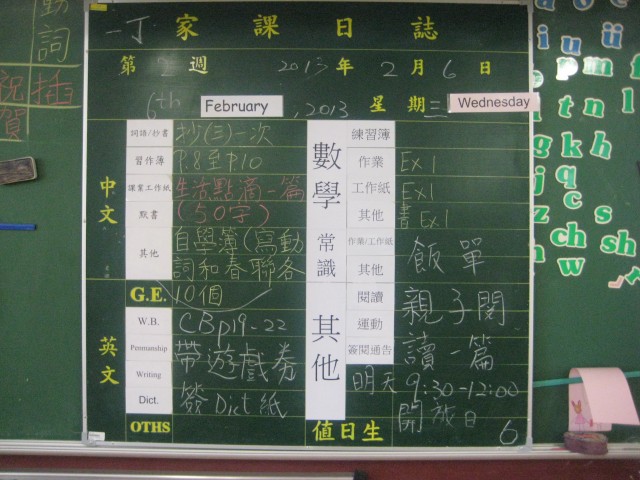 動
詞
祝 插
賀
一丁 家課日誌
第 2 週 2013 年 2 月 6 日
6th February , 2013 星期 三 Wednesday
中文
詞語/抄書 抄(三)一次
習作簿 P.8至P.10
課業工作紙 生活點滴一篇
默書 (50字)
其他 自學簿(寫動
詞和春聯各
G.E. 10個
英文
W.B. CBp19-22
Penmanship 帶遊戲券
Writing
Dict. 簽Dict紙
OTHS
數學
練習簿
作業 Ex1
工作紙 Ex1
其他 書Ex1
常識
作業/工作紙 飯單
其他
其他
閱讀 親子閱
運動 讀一篇
簽閱通告
明天 9:30-12:00
開放日
值日生 6
ü
i u
p m f
t n h
g k b
j q
c s
z ch sh
n w